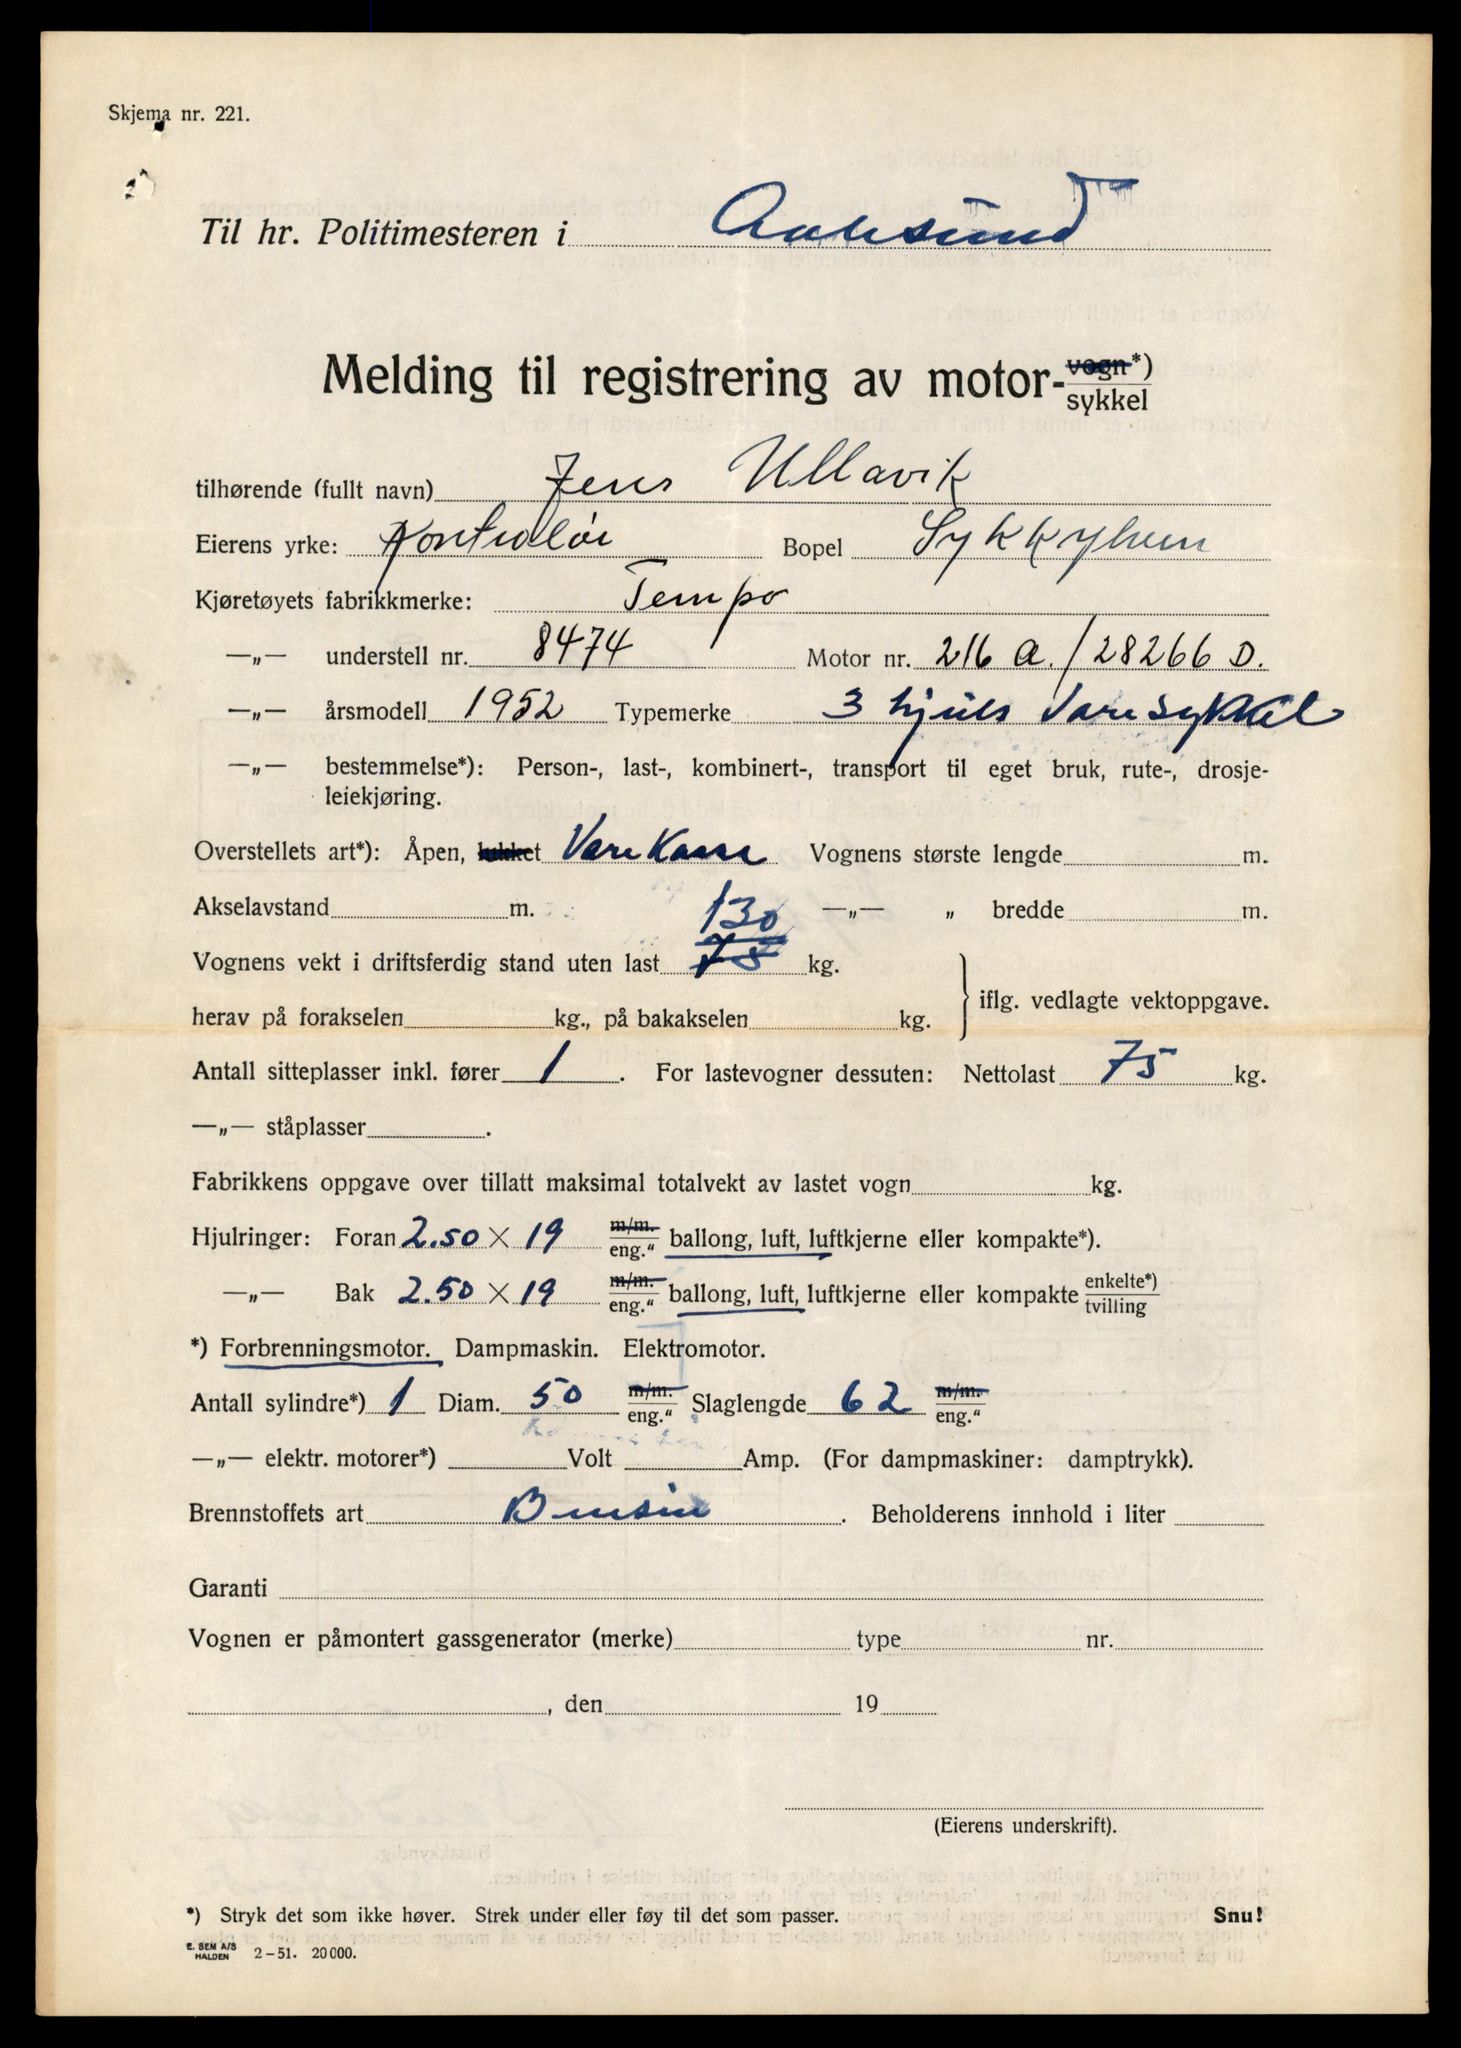 Skjema nr. 221.
Til hr. Politimesteren i Aalesund
Melding til registrering av motor-vogn*)
sykkel
tilhørende (fullt navn) Jens Ullavik
Eierens yrke: Kontrolør Bopel Sykkylven
Kjøretøyets fabrikkmerke: Tempo
—„— understell nr. 8474 Motor nr. 216 a. / 28266 D.
—„— årsmodell 1952 Typemerke 3 hjuls Varesykkel
—„— bestemmelse*): Person-, last-, kombinert-, transport til eget bruk, rute-, drosje-
leiekjøring.
Overstellets art*): Åpen, lukket Varekasse Vognens største lengde m.
Akselavstand m. —„— „ bredde m.
130
Vognens vekt i driftsferdig stand uten last 75 kg.
herav på forakselen kg., på bakakselen kg. iflg. vedlagte vektoppgave.
Antall sitteplasser inkl. fører 1. For lastevogner dessuten: Nettolast 75 kg.
—„— ståplasser .
Fabrikkens oppgave over tillatt maksimal totalvekt av lastet vogn kg.
Hjulringer: Foran 2.50 × 19 m/m. eng.“ ballong, luft, luftkjerne eller kompakte*).
—„— Bak 2.50 × 19 m/m. eng.“ ballong, luft, luftkjerne eller kompakte enkelte*) tvilling
*) Forbrenningsmotor. Dampmaskin. Elektromotor.
Antall sylindre*) 1 Diam. 50 m/m. eng.“ Slaglengde 62 m/m. eng.“
—„— elektr. motorer*) Volt Amp. (For dampmaskiner: damptrykk).
Brennstoffets art Bensin. Beholderens innhold i liter
Garanti
Vognen er påmontert gassgenerator (merke) type nr.
, den 19
(Eierens underskrift).
*) Stryk det som ikke høver. Strek under eller føy til det som passer. Snu!
E. SEM A/S
HALDEN 2–51. 20 000.